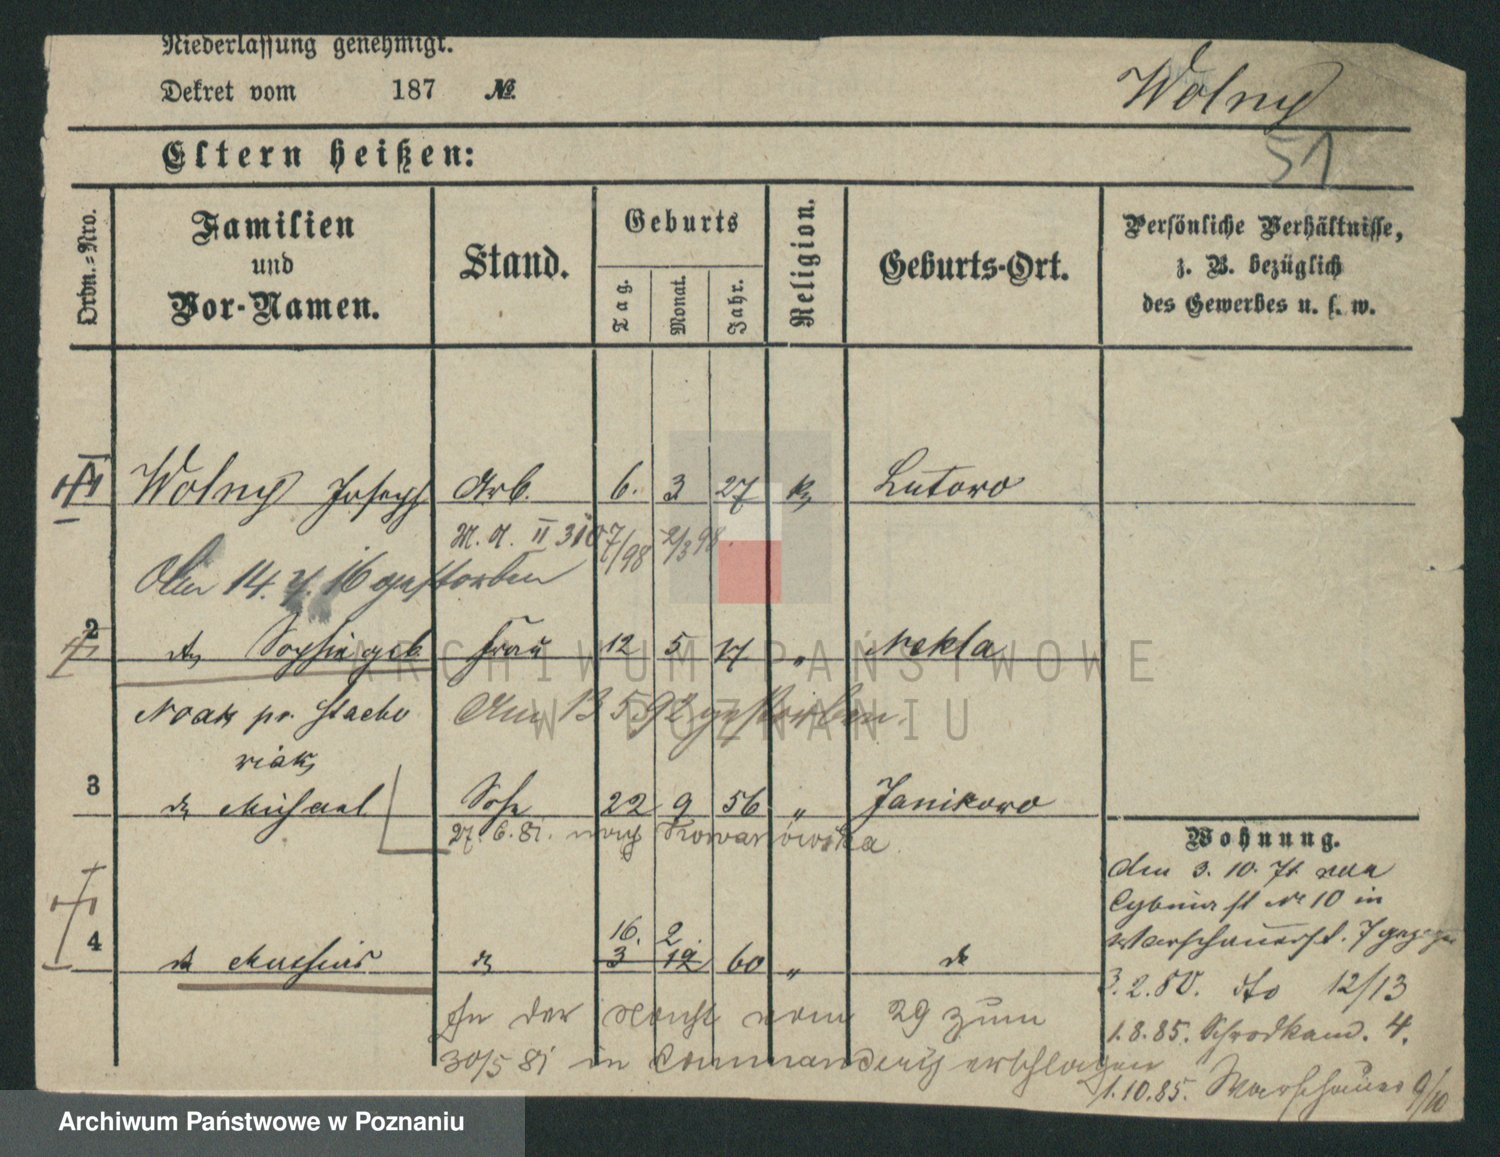 Niederlassung genehmigt.
Dekret vom 187 №.
Wolny
51
Eltern heißen:
Ordn.-Nro.
Familien
und
Vor-Namen.
Stand.
Geburts
Tag.
Monat.
Jahr.
Religion.
Geburts-Ort.
Persönliche Verhältnisse,
z. B. bezüglich
des Gewerbes u. s. w.
Wolny Joseph Arb. 6. 3 27 k Lutowo
M. A. II 310 7/98 2/3 98.
14. 16 gestorben
2 Sophie geb. Frau 12 5 " Nekla
Noak pr. Stacho
wiak
Am 13 5 92 gestorben.
3 do Michael Sohn 22 9 56 " Janikowo
27. 6. 81. nach
4 do Mathias do 16. 2. 3 12 60 " do
In der Nacht vom 29 zum
30/5 81 in Commenderig erschlagen
Wohnung.
den 3. 10. 71 von
Cybina st № 10 in
Warschauerst. 7
3. 2. 80. dto 12/13
1. 8. 85. Schrodkam. 4.
1. 10. 85. Warschauer 9/10
ARCHIWUM PAŃSTWOWE
W POZNANIU
Archiwum Państwowe w Poznaniu